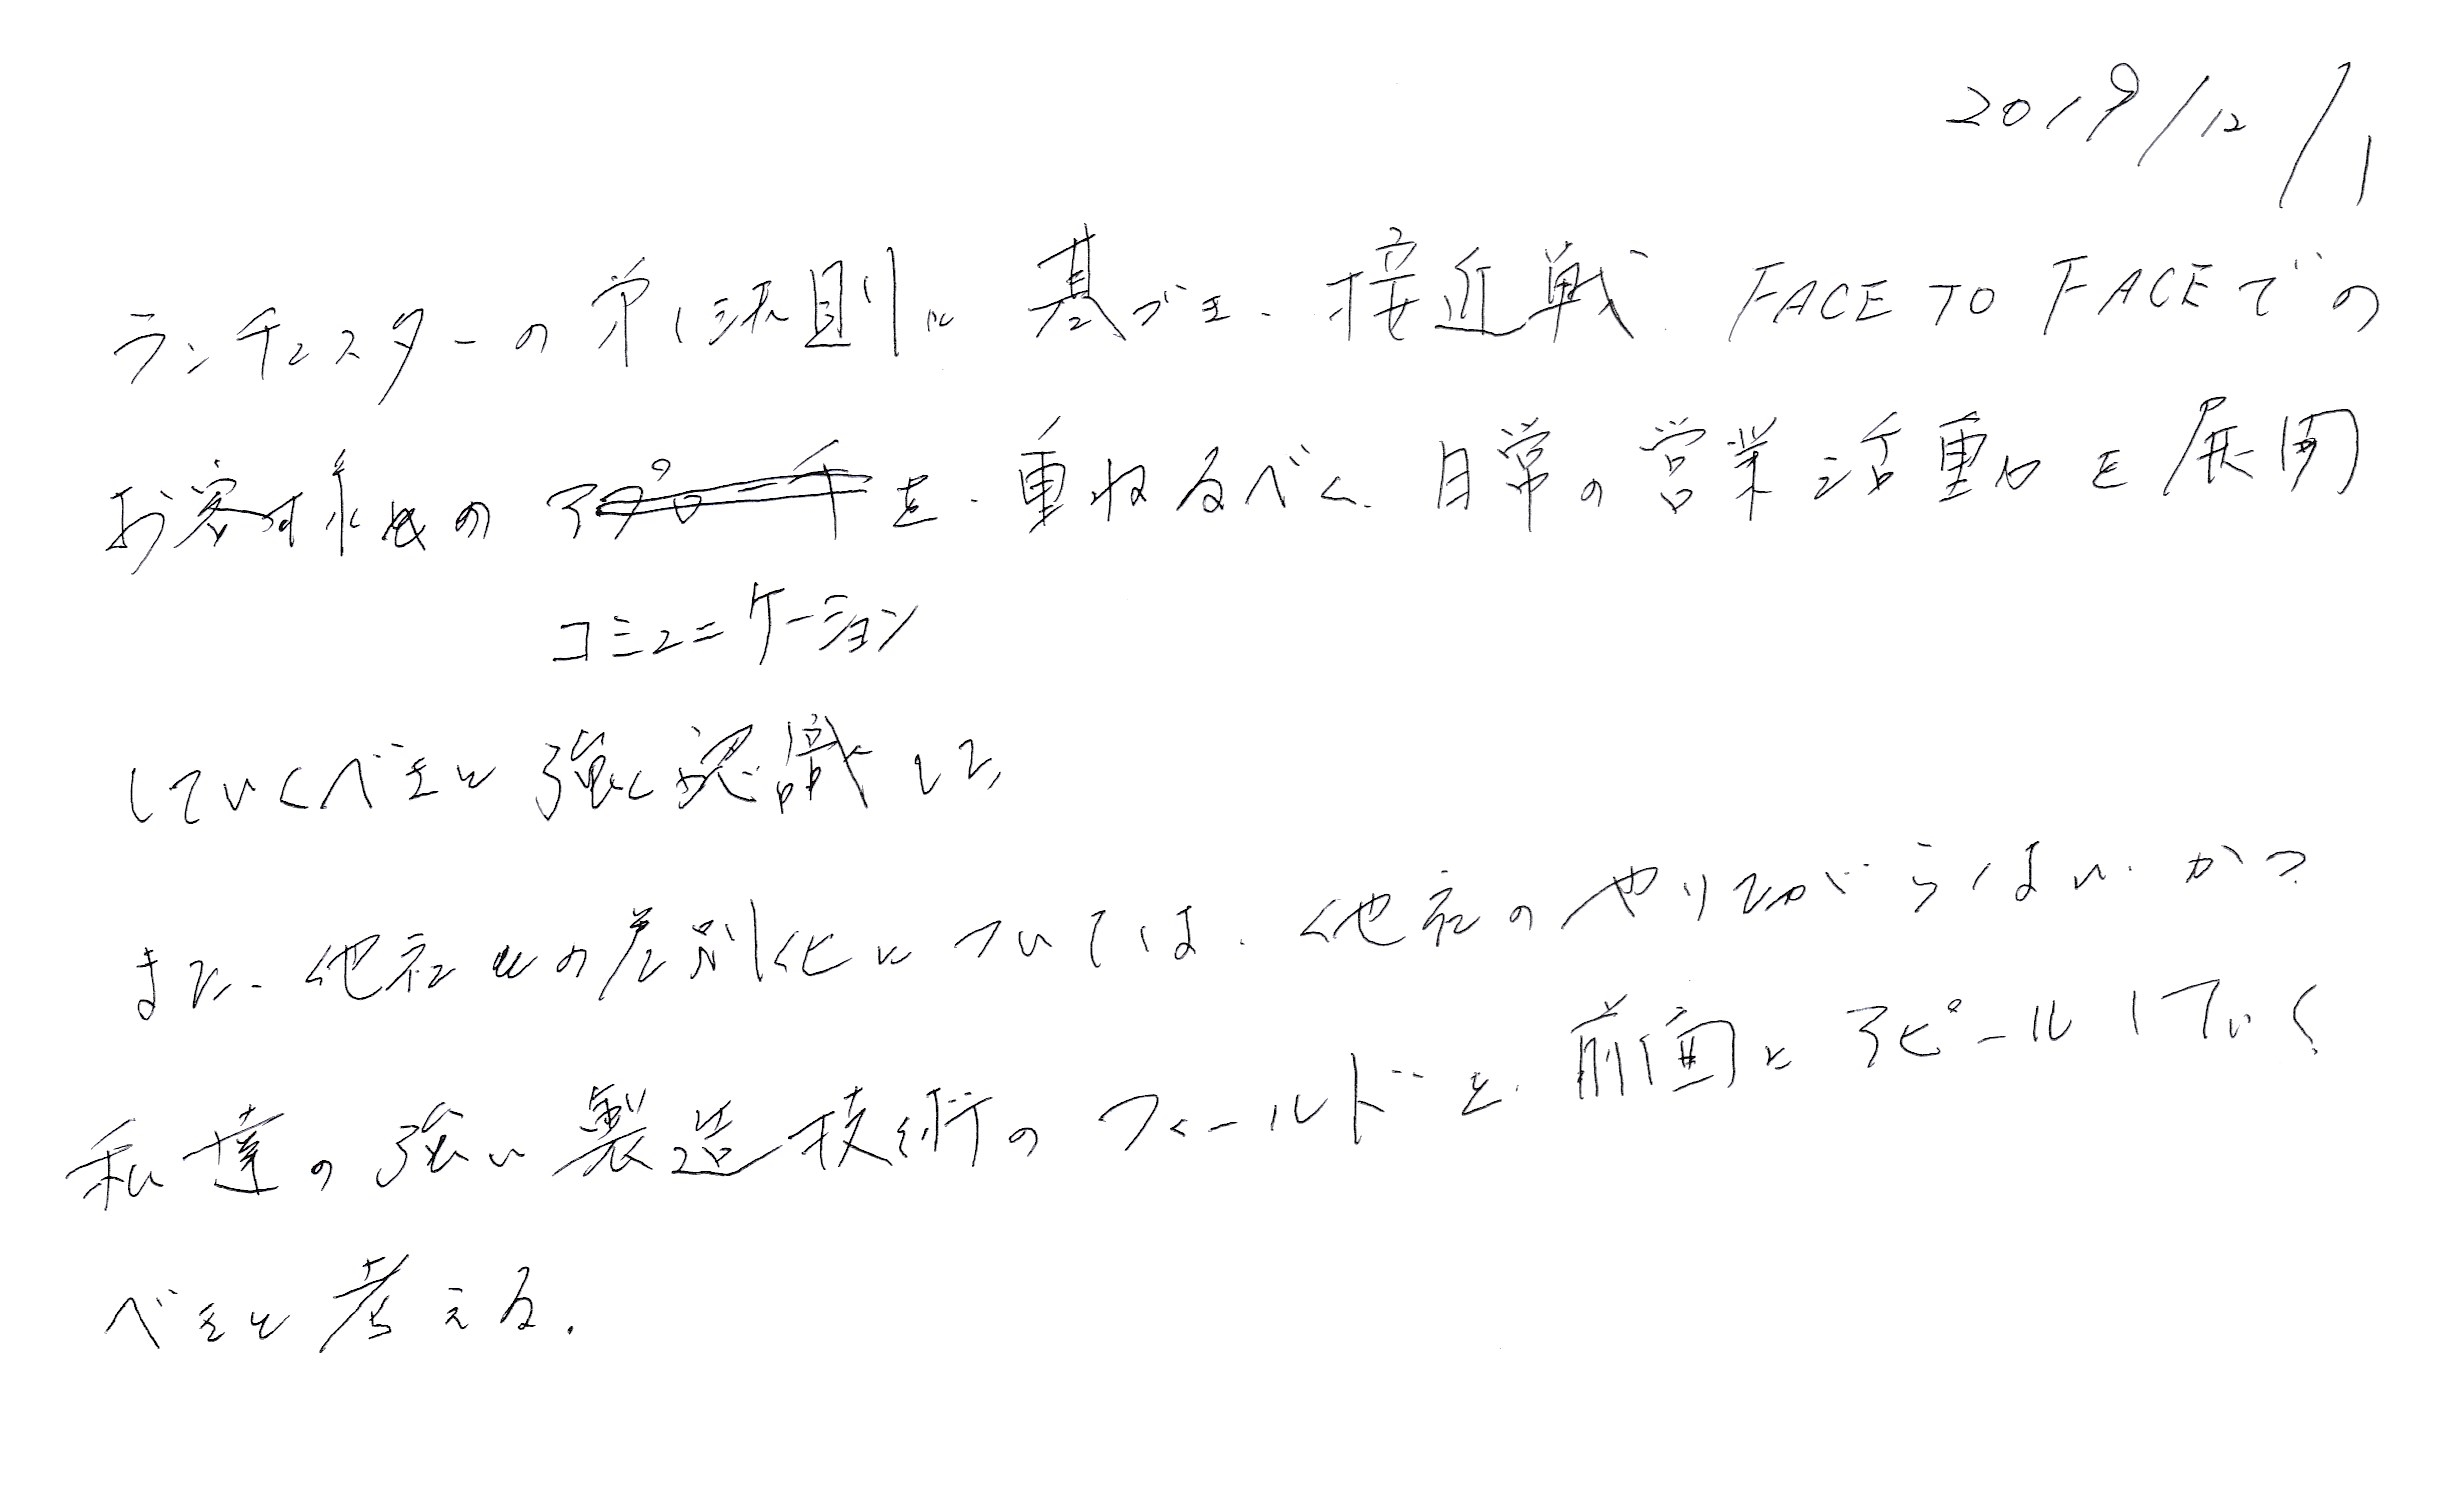 2019/12/1
ランチェスターの第1法則に基づき、接近戦、FACE TO FACEでの
お客様との アプローチ を、重ねるべく、日常の営業活動を展開
コミュニケーション
していくべきと強く認識した。
また、他社との差別化については、他社のやりたがらない、かつ
私達の強い製造技術のフィールドを、前面にアピールしていく
べきと考える.